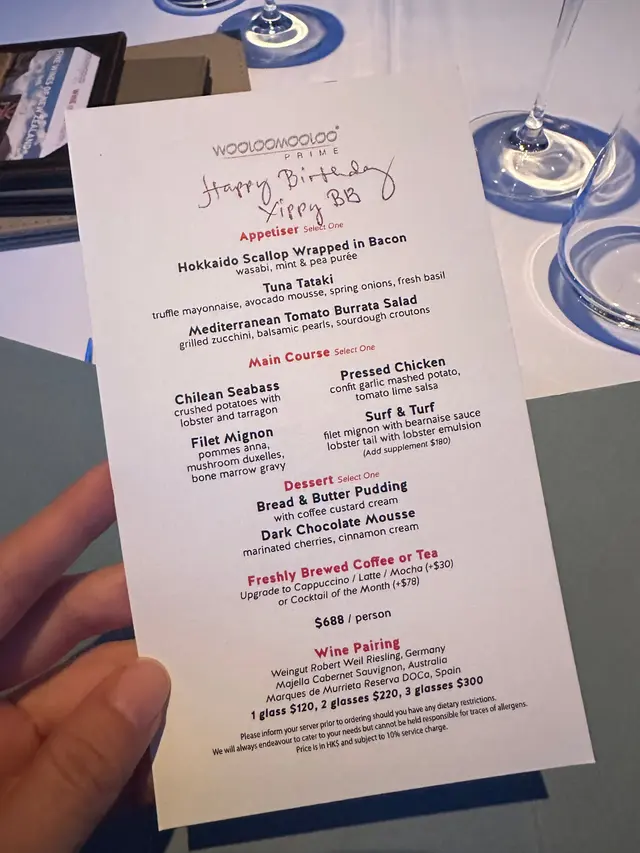 WOOLOOMOOLOO
PRIME
Happy Birthday
Yippy BB
Appetiser Select One
Hokkaido Scallop Wrapped in Bacon
wasabi, mint & pea purée
Tuna Tataki
truffle mayonnaise, avocado mousse, spring onions, fresh basil
Mediterranean Tomato Burrata Salad
grilled zucchini, balsamic pearls, sourdough croutons
Main Course Select One
Chilean Seabass
crushed potatoes with
lobster and tarragon
Filet Mignon
pommes anna,
mushroom duxelles,
bone marrow gravy
Pressed Chicken
confit garlic mashed potato,
tomato lime salsa
Surf & Turf
filet mignon with bearnaise sauce
lobster tail with lobster emulsion
(Add supplement $180)
Dessert Select One
Bread & Butter Pudding
with coffee custard cream
Dark Chocolate Mousse
marinated cherries, cinnamon cream
Freshly Brewed Coffee or Tea
Upgrade to Cappuccino / Latte / Mocha (+$30)
or Cocktail of the Month (+$78)
$688 / person
Wine Pairing
Weingut Robert Weil Riesling, Germany
Majella Cabernet Sauvignon, Australia
Marques de Murrieta Reserva DOCa, Spain
1 glass $120, 2 glasses $220, 3 glasses $300
Please inform your server prior to ordering should you have any dietary restrictions.
We will always endeavour to cater to your needs but cannot be held responsible for traces of allergens.
Price is in HK$ and subject to 10% service charge.